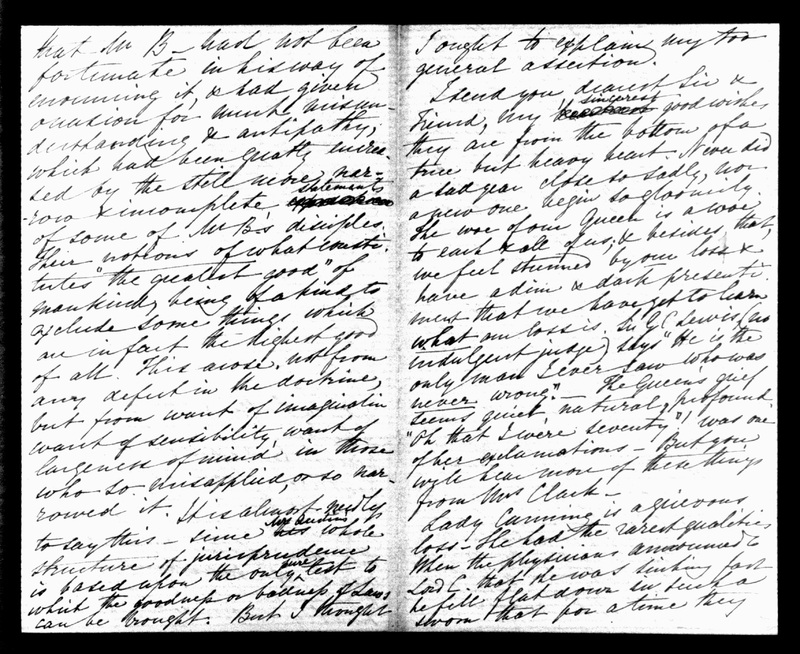 that Mr B– had not been
fortunate in his way of
enouncing it, & had given
occasion for much misun
derstanding & antipathy,
which had been greatly increa-
sed by the still more nar-
row & incomplete statements
of some of Mr B's disciples.
Their notions of what consti-
tutes "the greatest good" of
mankind, being of a kind to
exclude some things which
are in fact the highest good
of all. This arose, not from
any defect in the doctrine,
but from want of imagination
want of sensibility, want of
largeness of mind, in those
who so misapplied or so nar-
rowed it. It is almost needless
to say this – since Mr Austin's whole
structure of jurisprudence
is based upon the only sure test to
which the goodness or badness of Laws
can be brought. But I thought
I ought to explain my too
general assertion.
I send you dearest Sir &
Friend, my sincerest good wishes
they are from the bottom of a
true but heavy heart. Never did
a sad year close so sadly, nor
a new one begin so gloomily.
The woe of our Queen is a woe
to each & all of us, & besides that,
we feel stunned by our loss &
have a dim & dark presenti-
ment that we have yet to learn
what our loss is. Sir G C Lewis (no
indulgent judge) says "He is the
only man I ever saw who was
never wrong." – The Queen's grief
seems quiet, natural, profound.
"Oh that I were seventy"! was one
of her exclamations – But you
will hear more of these things
from Mrs Clark –
Lady Canning is a grievous
loss – She had the rarest qualities
When the physicians announced to
Lord C. that she was sinking fast
he fell flat down in such a
swoon that for a time they